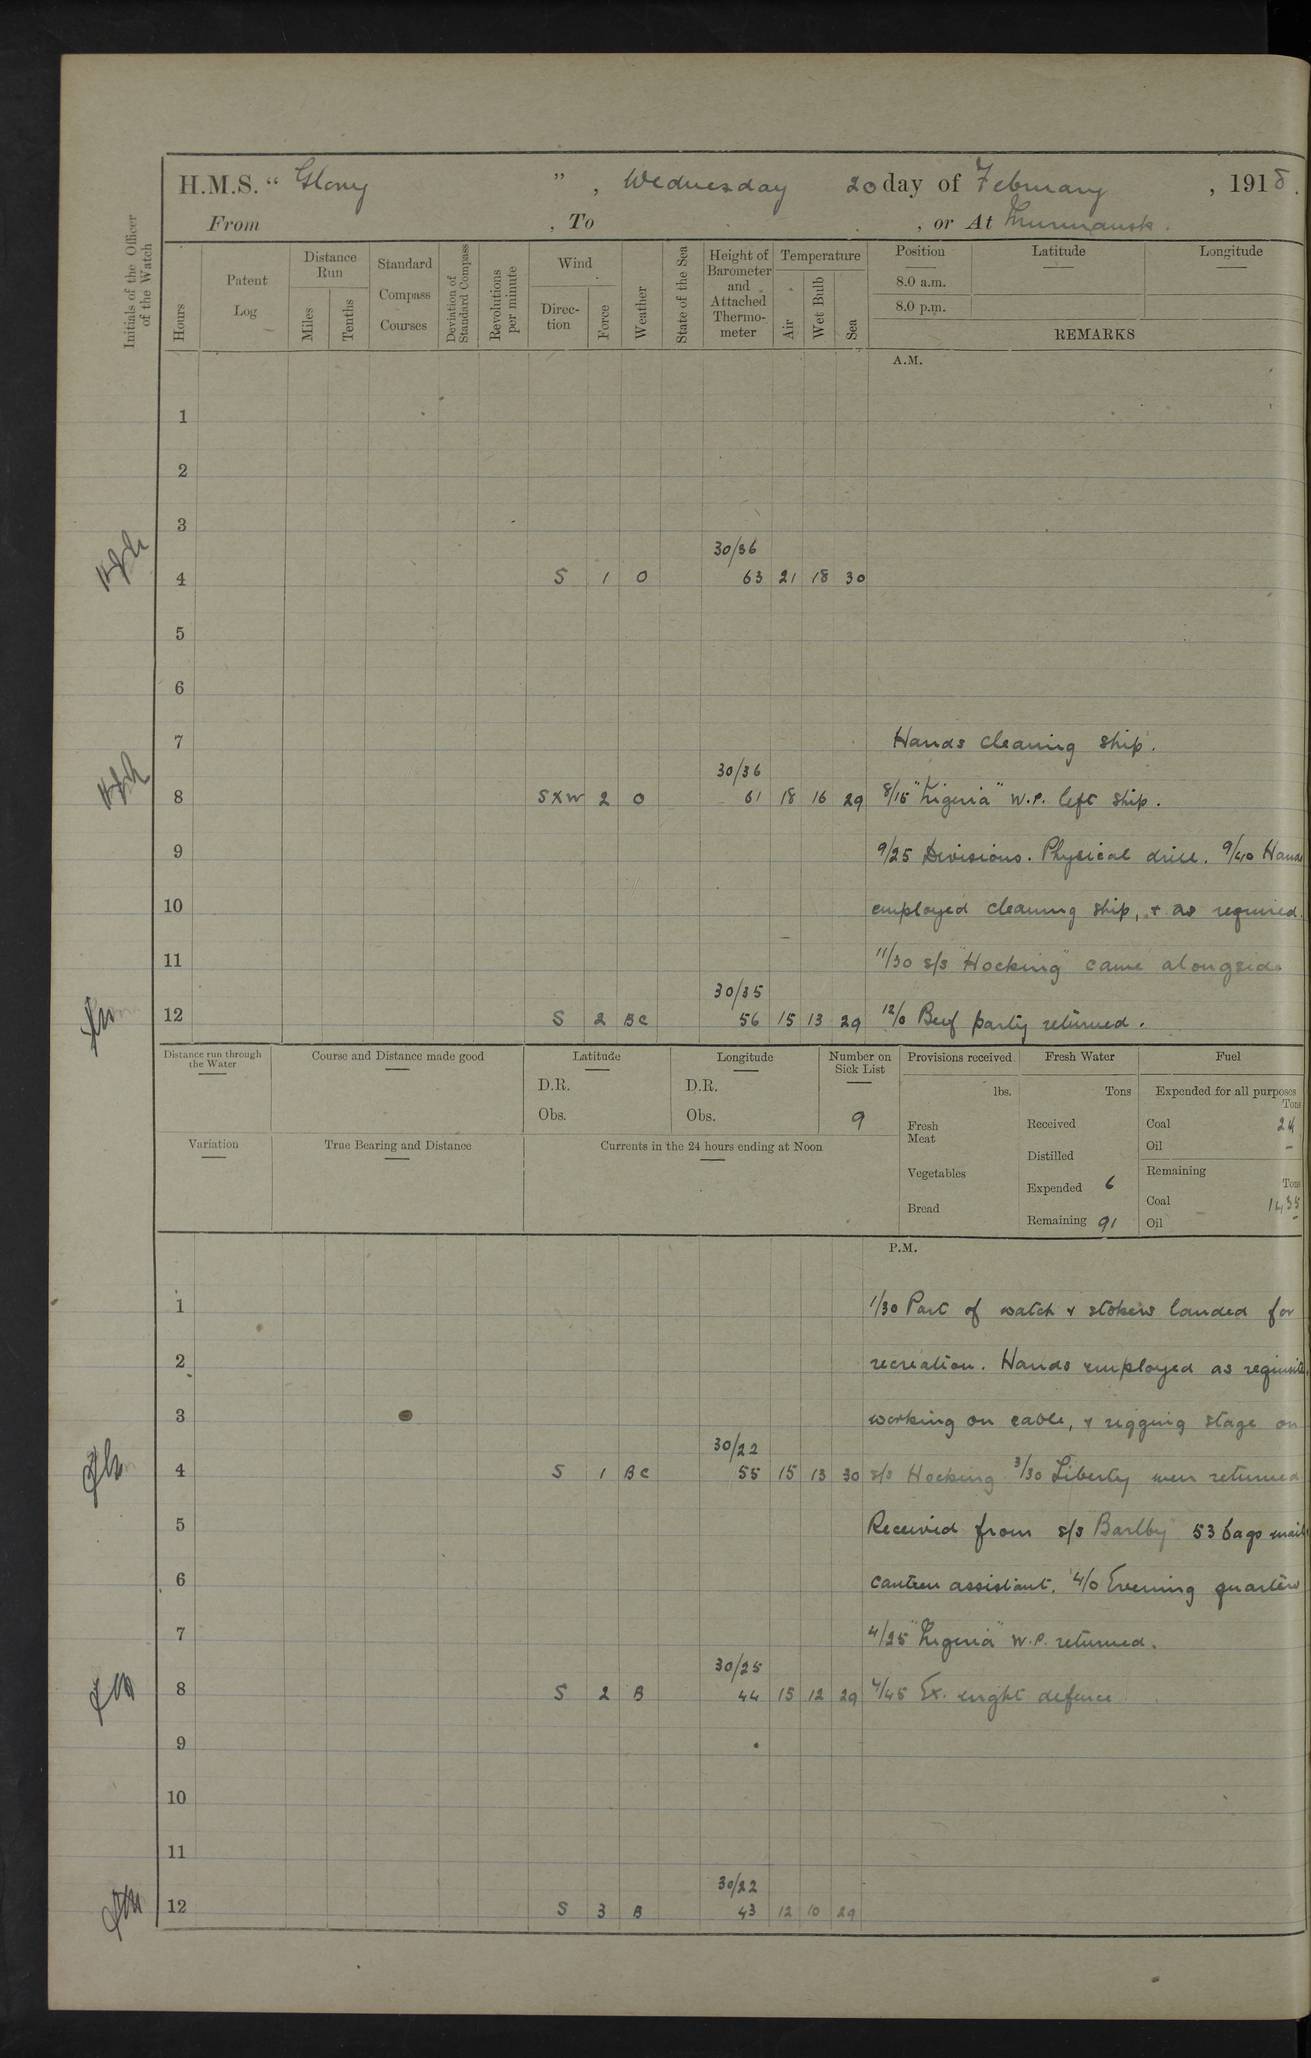 H.M.S. “ Glory ” , Wednesday 20 day of February , 1918.
From , To , or At Murmansk.
Initials of the Officer of the Watch
Hours
Patent Log
Distance Run
Miles
Tenths
Standard Compass Courses
Deviation of Standard Compass
Revolutions per minute
Wind
Direc-tion
Force
Weather
State of the Sea
Height of Barometer and Attached Thermo-meter
Temperature
Air
Wet Bulb
Sea
Position
8.0 a.m.
8.0 p.m.
Latitude
Longitude
REMARKS
A.M.
1
2
3
30/36
4 S 1 O 63 21 18 30
5
6
7 Hands cleaning ship.
30/36
8 S X W 2 O 61 18 16 29 8/15 "Nigeria" W.P. left ship.
9 9/25 Divisions. Physical drill. 9/40 Hands
10 employed cleaning ship, + as required.
11 11/30 s/s "Hocking" came alongside
30/35
12 S 2 BC 56 15 13 29 12/0 Beef party returned.
Distance run through the Water
Course and Distance made good
Latitude
D.R.
Obs.
Longitude
D.R.
Obs.
Number on Sick List
9
Provisions received
lbs.
Fresh Meat
Vegetables
Bread
Fresh Water
Tons
Received
Distilled
Expended 6
Remaining 91
Fuel
Expended for all purposes
Tons
Coal 24
Oil -
Remaining
Tons
Coal 1435
Oil -
Variation
True Bearing and Distance
Currents in the 24 hours ending at Noon
P.M.
1 1/30 Part of watch + stokers landed for
2 recreation. Hands employed as requisite,
3 working on cable, + rigging stage on
30/22
4 S 1 BC 55 15 13 30 s/s Hocking 3/30 Liberty men returned
5 Received from s/s Barlby 53 bags mails
6 canteen assistant. 4/0 Evening quarters
7 4/25 "Nigeria" W.P. returned.
30/25
8 S 2 B 44 15 12 29 4/45 Ex. night defence
9
10
11
30/22
12 S 3 B 43 12 10 29